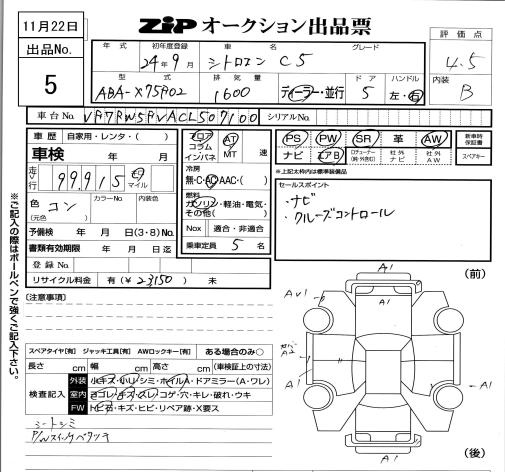 11月22日
ZIP オークション出品票
出品No.
5
評価点
4.5
内装
B
年式 初年度登録 車名 グレード
24年9月 シトロエン C5
型式 排気量 ドア ハンドル
ABA-X75F02 1600 ディーラー・並行 5 左・右
車台No. VF7RW5FVACL507100 シリアルNo.
車歴 自家用・レンタ・( )
車検 年 月
走行 99,915 キロ マイル
色 コン カラーNo. 内装色
(元色)
予備検 年 月 日(3・8)No.
書類有効期限 年 月 日迄
登録No.
リサイクル料金 有(¥23,150) 未
フロア
コラム
インパネ
AT
MT 速
冷房
無・C・AC・AAC・( )
燃料
ガソリン・軽油・電気・
その他( )
Nox 適合・非適合
乗車定員 5 名
PS PW SR 革 AW
ナビ エアB
社外ナビ 社外AW
新車時保証書
スペアキー
※上記太枠内は標準装備品
セールスポイント
・ナビ
・クルーズコントロール
※ご記入の際はボールペンで強くご記入下さい。
(注意事項)
スペアタイヤ[有] ジャッキ工具[有] AWロックキー[有] ある場合のみ○
長さ cm 幅 cm 高さ cm (車検証上の寸法)
検査記入
外装 小キズ・小U・シミ・ホイルA・ドアミラー(A・ワレ)
室内 ヨゴレ・キズ・スレ・コゲ・穴・キレ・破れ・ウキ
FW トビ石・キズ・ヒビ・リペア跡・X要ス
シートシミ
P/Wスイッチベタツキ
(前)
A1
A1
AU1
A1
A1
A1
A1
(後)